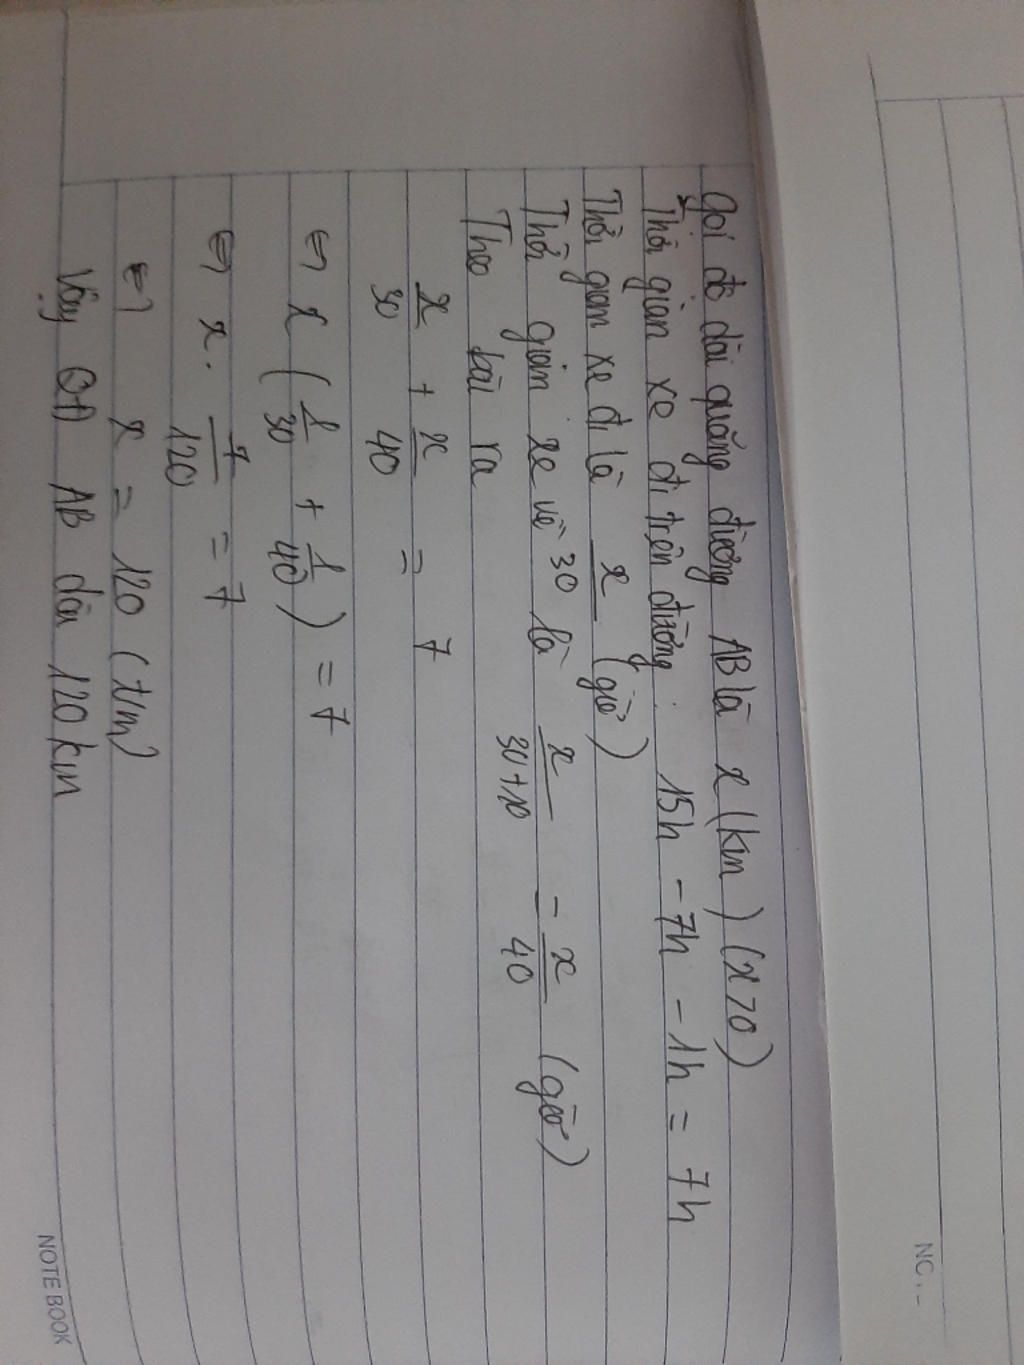 Gọi độ dài quãng đường AB là x (km) (x>0)
Thời gian xe đi trên đường: 15h - 7h - 1h = 7h
Thời gian xe đi là x/30 (giờ)
Thời gian xe về là x/30+10 = x/40 (giờ)
Theo bài ra
x/30 + x/40 = 7
⇔ x (1/30 + 1/40) = 7
⇔ x. 7/120 = 7
⇔ x = 120 (t/m)
Vậy QĐ AB dài 120 km
NOTE BOOK
NO.